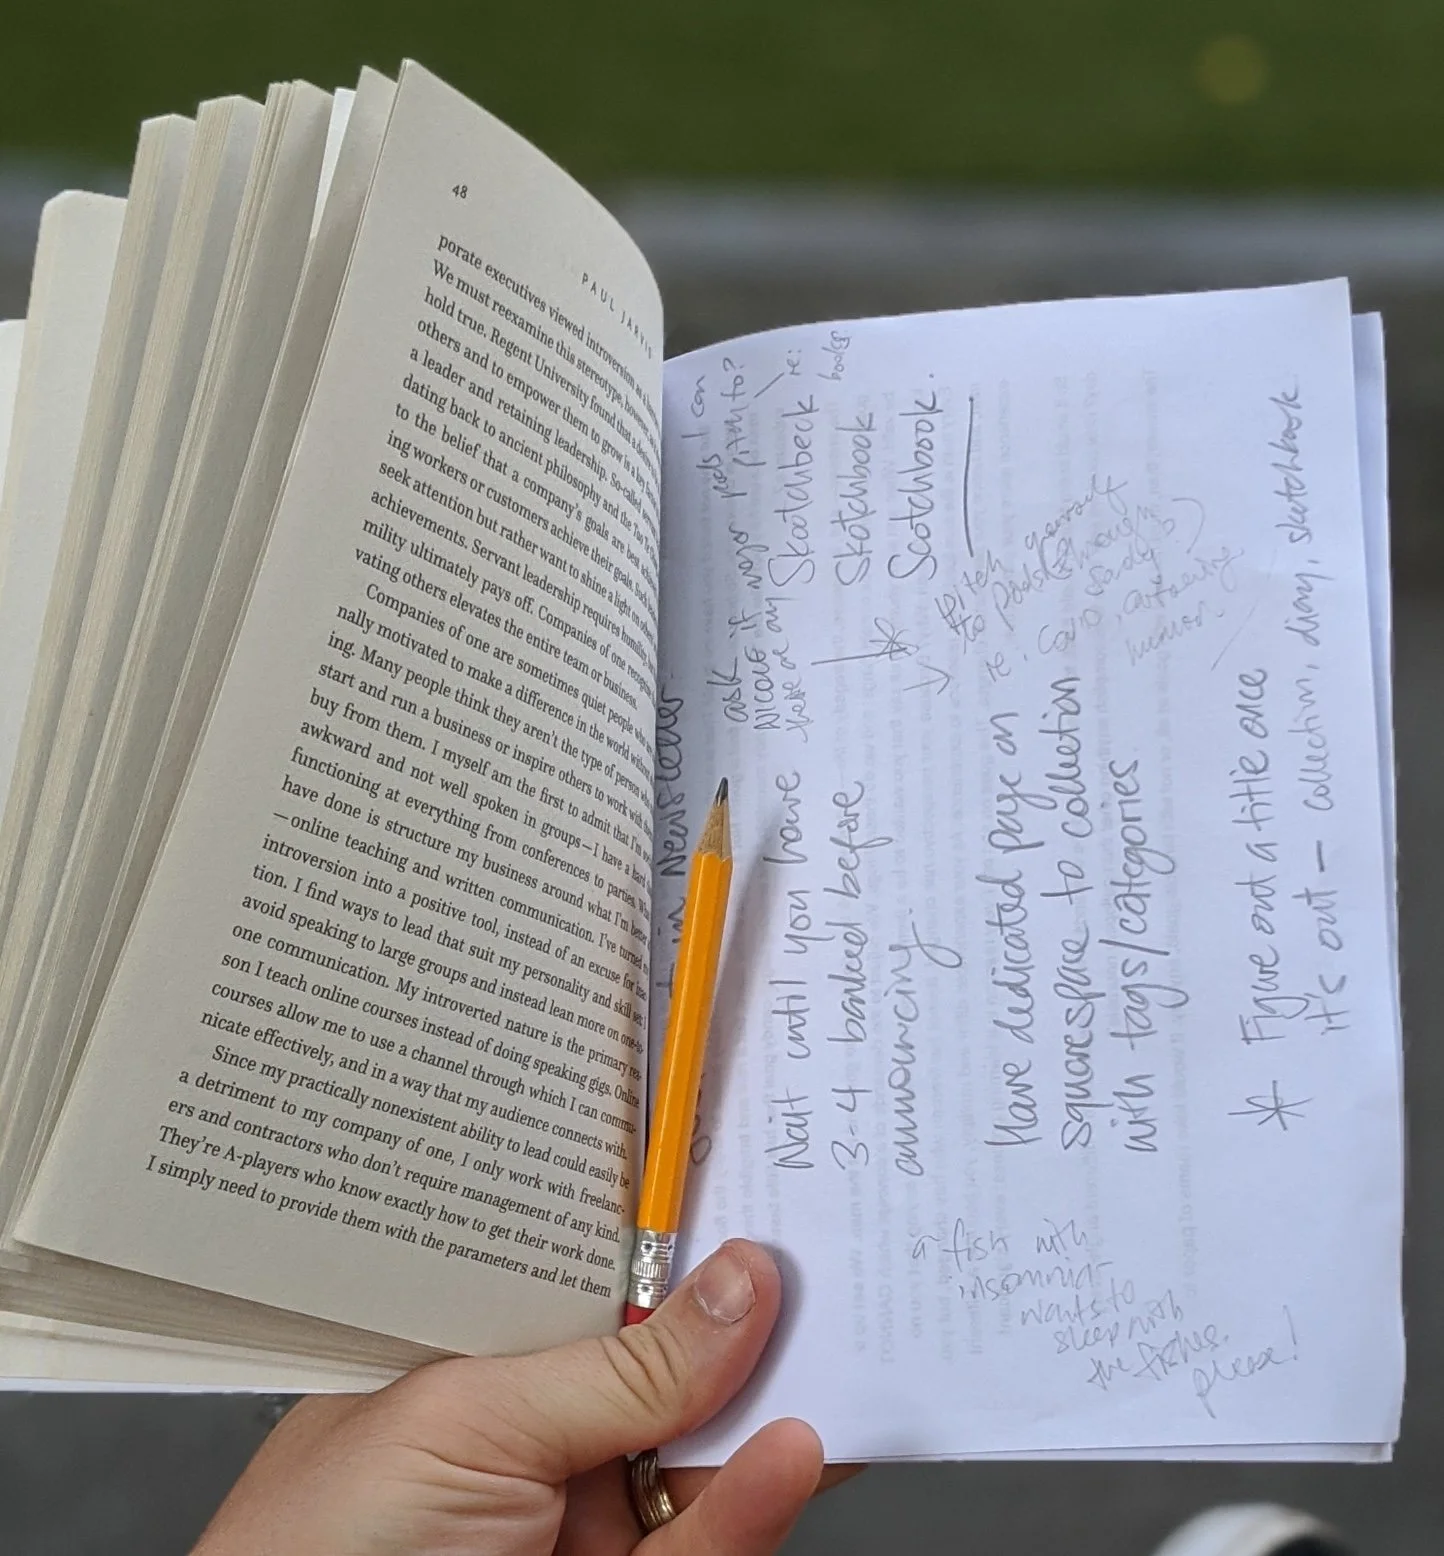 48
PAUL JARVIS
porate executives viewed introversion as a
We must reexamine this stereotype, however, as
hold true. Regent University found that a desire
others and to empower them to grow is a key
a leader and retaining leadership. So-called
dating back to ancient philosophy and the Tao Te
to the belief that a company's goals are best
ing workers or customers achieve their goals. Such
seek attention but rather want to shine a light on
achievements. Servant leadership requires humility,
mility ultimately pays off. Companies of one recognize
vating others elevates the entire team or business.
Companies of one are sometimes quiet people who
nally motivated to make a difference in the world without
ing. Many people think they aren't the type of person who
start and run a business or inspire others to work with
buy from them. I myself am the first to admit that I'm
awkward and not well spoken in groups—I have a hard
functioning at everything from conferences to parties. What
have done is structure my business around what I'm better
—online teaching and written communication. I've turned
introversion into a positive tool, instead of an excuse for
tion. I find ways to lead that suit my personality and skill set: I
avoid speaking to large groups and instead lean more on one-to-
one communication. My introverted nature is the primary rea-
son I teach online courses instead of doing speaking gigs. Online
courses allow me to use a channel through which I can commu-
nicate effectively, and in a way that my audience connects with.
Since my practically nonexistent ability to lead could easily be
a detriment to my company of one, I only work with freelanc-
ers and contractors who don't require management of any kind.
They're A-players who know exactly how to get their work done.
I simply need to provide them with the parameters and let them
in Newsletter.
ask
Nicole if
pitch to?
re:
books
Wait until you have
3-4 banked before
announcing.
Skotchbook
Skotchbook
Scotchbook.
pitch
to
re.
humor.
Have dedicated page on
squarespace to collection
with tags/categories
* Figure out a title once
it's out - collection, diary, sketchbook
a fish with
insomnia
wants to
sleep with
the fishes.
please!